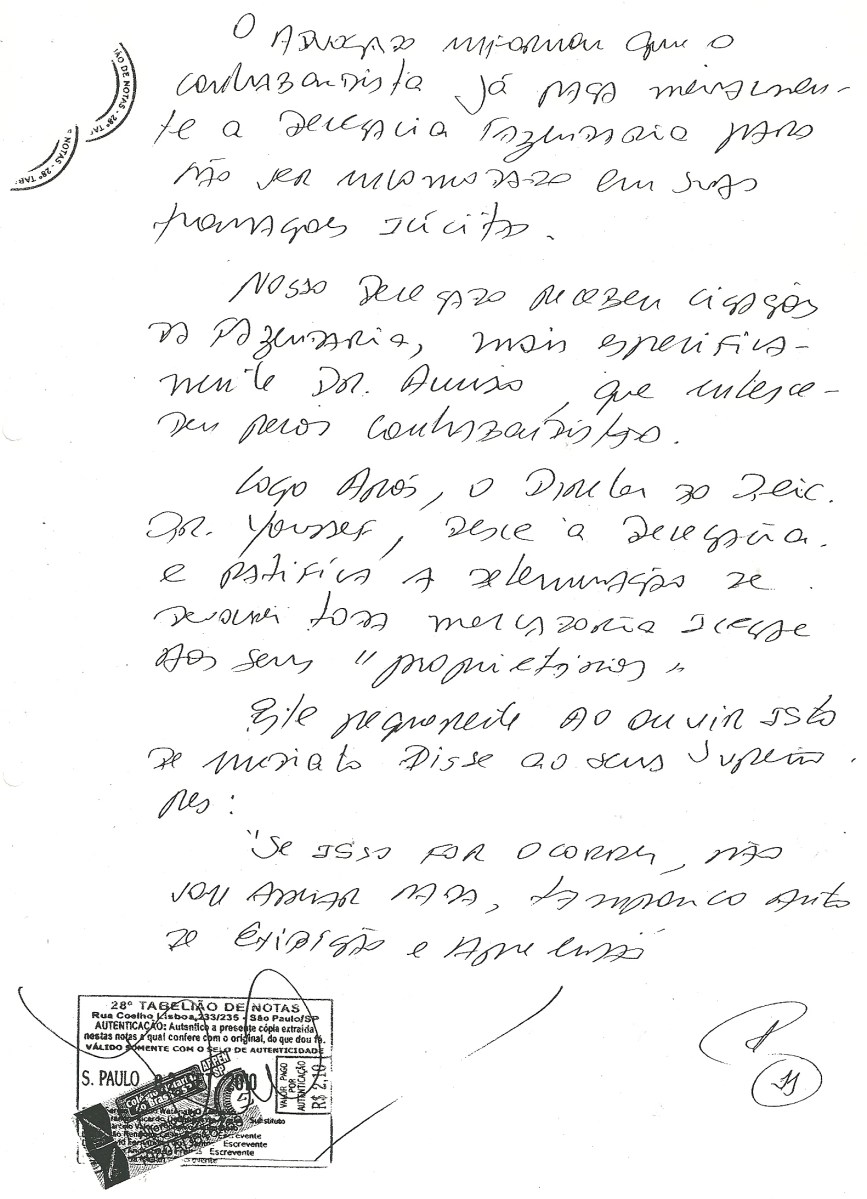 O Advogado informou que o
contrabandista já paga mensalmen-
te a Delegacia Fazendaria para
não ser incomodado em suas
transações ilícitas.
Nosso Delegado recebeu ligações
da Fazendaria, mais especifica-
mente Dr. que interce-
deu pelos contrabandistas.
Logo Após, o Diretor do Deic.
Dr. Youssef, desce a Delegacia.
e ratifica a determinação de
devolver toda mercadoria ilegal
aos seus "proprietários"
Este requerente ao ouvir isto
de imediato Disse ao seus Superio
res:
"Se isso for ocorrer, não
vou assinar nada, tampouco Auto
de Exibição e Apreensão
28º TABELIÃO DE NOTAS
Rua Coelho Lisboa, 233/235 - São Paulo/SP
AUTENTICAÇÃO: Autentico a presente cópia extraída
nestas notas a qual confere com o original, do que dou fé.
VÁLIDO SOMENTE COM O SELO DE AUTENTICIDADE
S. PAULO 2010
VALOR PAGO
POR
AUTENTICAÇÃO
R$ 2,10
Colégio Notarial
do Brasil
Substituto
Escrevente
Escrevente
IÃO DE NOTAS - 28º TA
NOTAS - 28º TAB